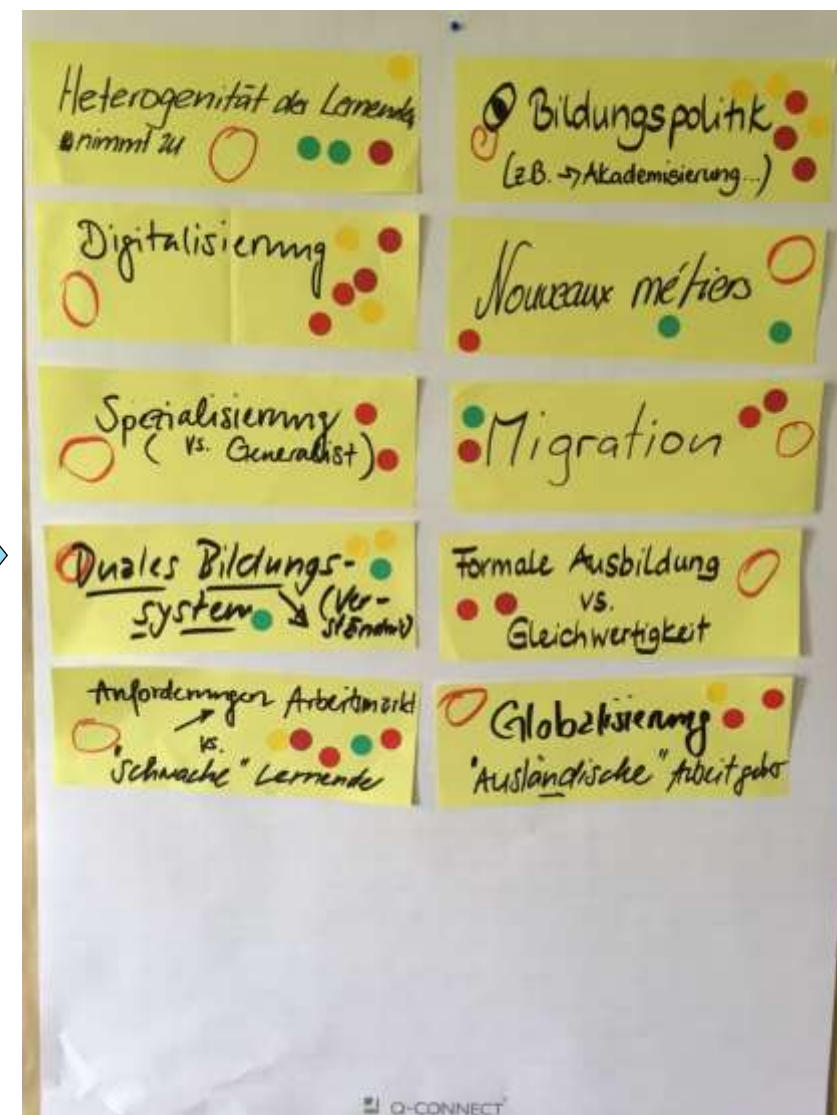 Heterogenität der Lernenden
nimmt zu
Digitalisierung
Spezialisierung
( vs. Generalist)
Duales Bildungs-
system (Ver-
ständnis)
Anforderungen Arbeitsmarkt
vs.
"Schwache" Lernende
Bildungspolitik
(z.B. → Akademisierung...)
Nouveaux métiers
Migration
Formale Ausbildung
vs.
Gleichwertigkeit
Globalisierung
"Ausländische" Arbeitgeber
Q-CONNECT